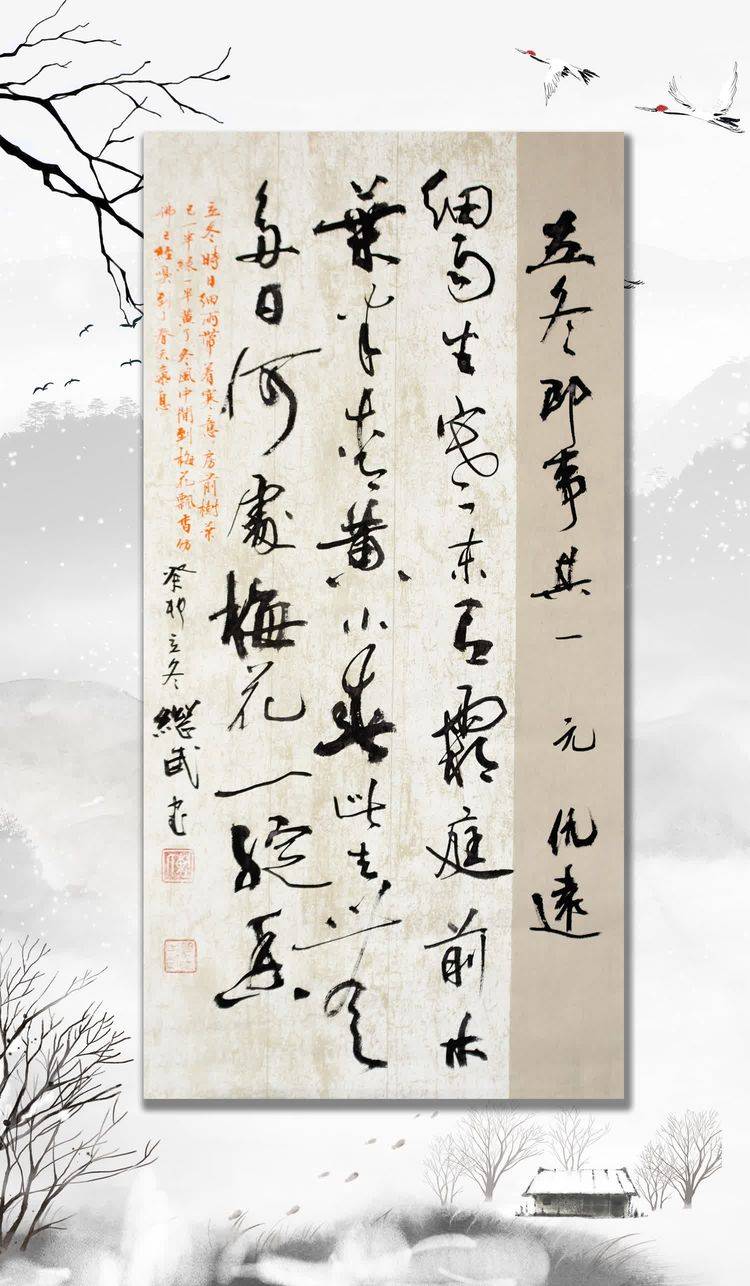 立冬即事其一 元 仇遠
細雨生寒未有霜庭前木
葉半青黄小春此去無
多日何處梅花一綻香
立冬時日細雨帶着寒意房前樹葉
已一半綠一半黄了冬風中聞到梅花飄香仿
佛已經嗅到了春天氣息
癸卯立冬 繼武書